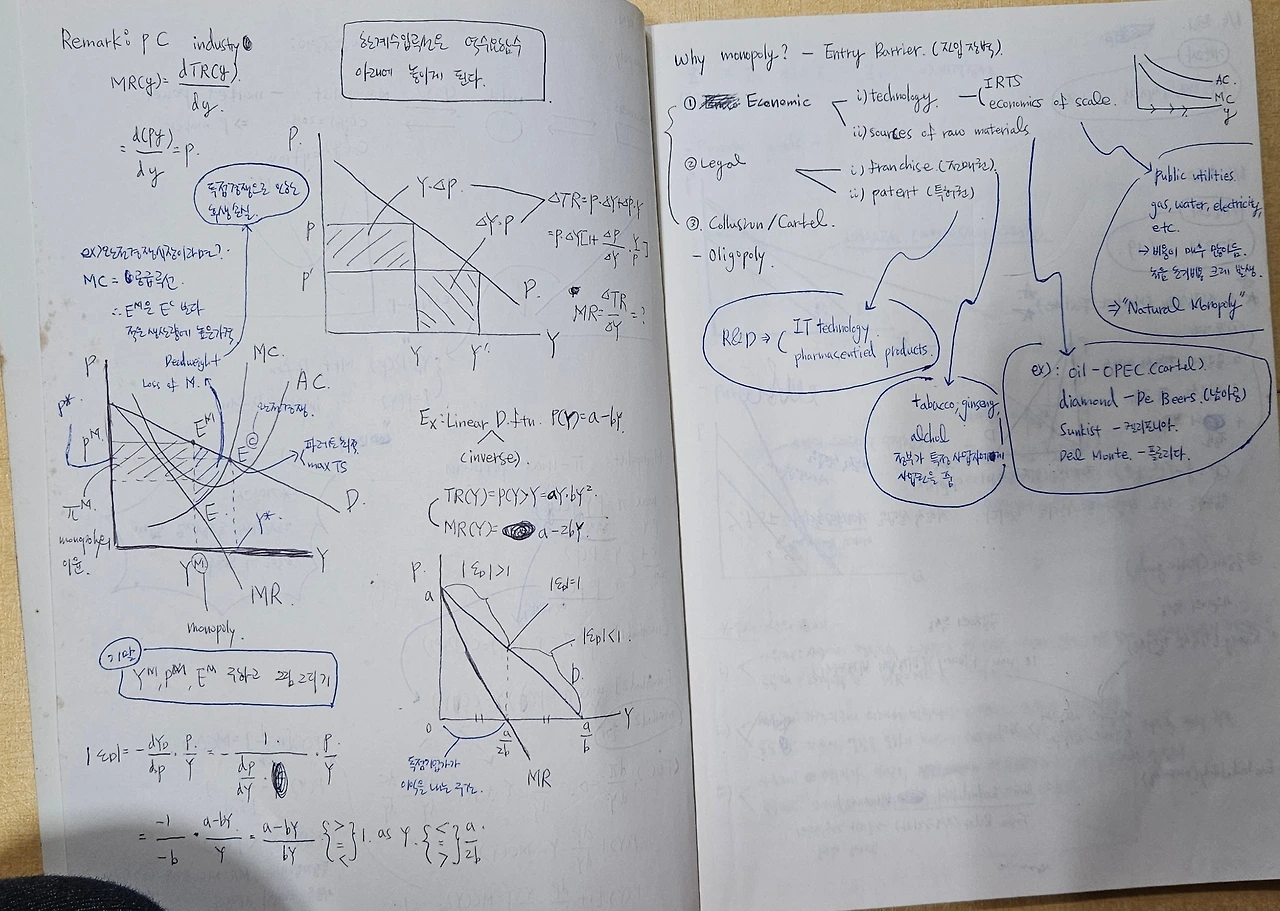 Remark: PC industry
MR(y) = dTR(y) / dy.
= d(Py) / dy = P.
한계수입곡선은 역수요함수
아래에 놓이게 된다.
독점경쟁으로 인한
후생손실.
ex) 완전경쟁시장이라면?
MC = 공급곡선
∴ Eᴹ은 Eᶜ 보다
적은 생산량에 높은가격
Deadweight
Loss of M.
P.
P
P'
Y·ΔP.
ΔY·P
ΔTR = P·ΔY+ΔP·Y
= P·ΔY[1+ ΔP/ΔY · Y/P]
MR = ΔTR/ΔY = ?
D.
Y
Y'.
Y
P
P*
Pᴹ
πᴹ
monopoly의
이윤.
MC.
AC.
완전경쟁.
Eᴹ
Eᶜ
E
파레토최적
max TS
D.
Y*
Y
Yᴹ
MR.
monopoly.
Ex: Linear D.ftn. P(Y) = a-bY.
(inverse).
TR(Y) = P(Y)Y = aY-bY².
MR(Y) = a-2bY.
P.
a
|εD|>1
|εD|=1
|εD|<1.
D.
0
a/2b
a/b
Y
MR
독점기업가가
이익을 내는 구간.
기말
Yᴹ, Pᴹ, Eᴹ 구하고 그림그리기
|εD| = - dYD/dP · P/Y = - 1 / (dP/dY) · P/Y
= -1/-b · a-bY/Y = a-bY/bY { > = < } 1. as Y. { < = > } a/2b.
Why monopoly? - Entry Barrier. (진입장벽).
① Economic
i) technology. - ( IRTS
economics of scale.
ii) sources of raw materials
AC.
MC
y
② Legal
i) franchise (전매권)
ii) patent (특허권)
③ Collusion/Cartel.
- Oligopoly.
public utilities.
gas, water, electricity,
etc.
→ 비용이 매우 많아듬.
⇒ "Natural Monopoly"
R&D → ( IT technology.
pharmacentied products.
tabacco, ginseng,
alchol
정부가 특정 사업자에게
사업권을 줌
ex) : oil - OPEC (cartel).
diamond - De Beers. (남아공)
Sunkist - 캘리포니아.
Del Monte. - 플로리다.